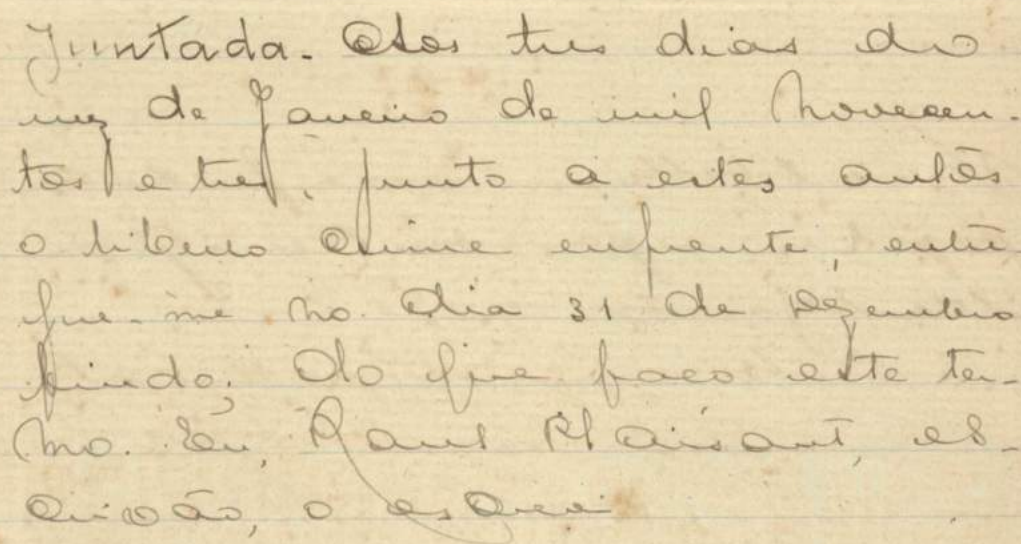 Juntada. Aos tres dias do
mez de Janeiro de mil novecen-
tos e tres, junto a estes autos
o libello crime enfrente, entre
gue-me no dia 31 de Dezembro
findo. Do que faço este ter-
mo. Eu, Raul Plaisant, es-
crivão, o escrevi